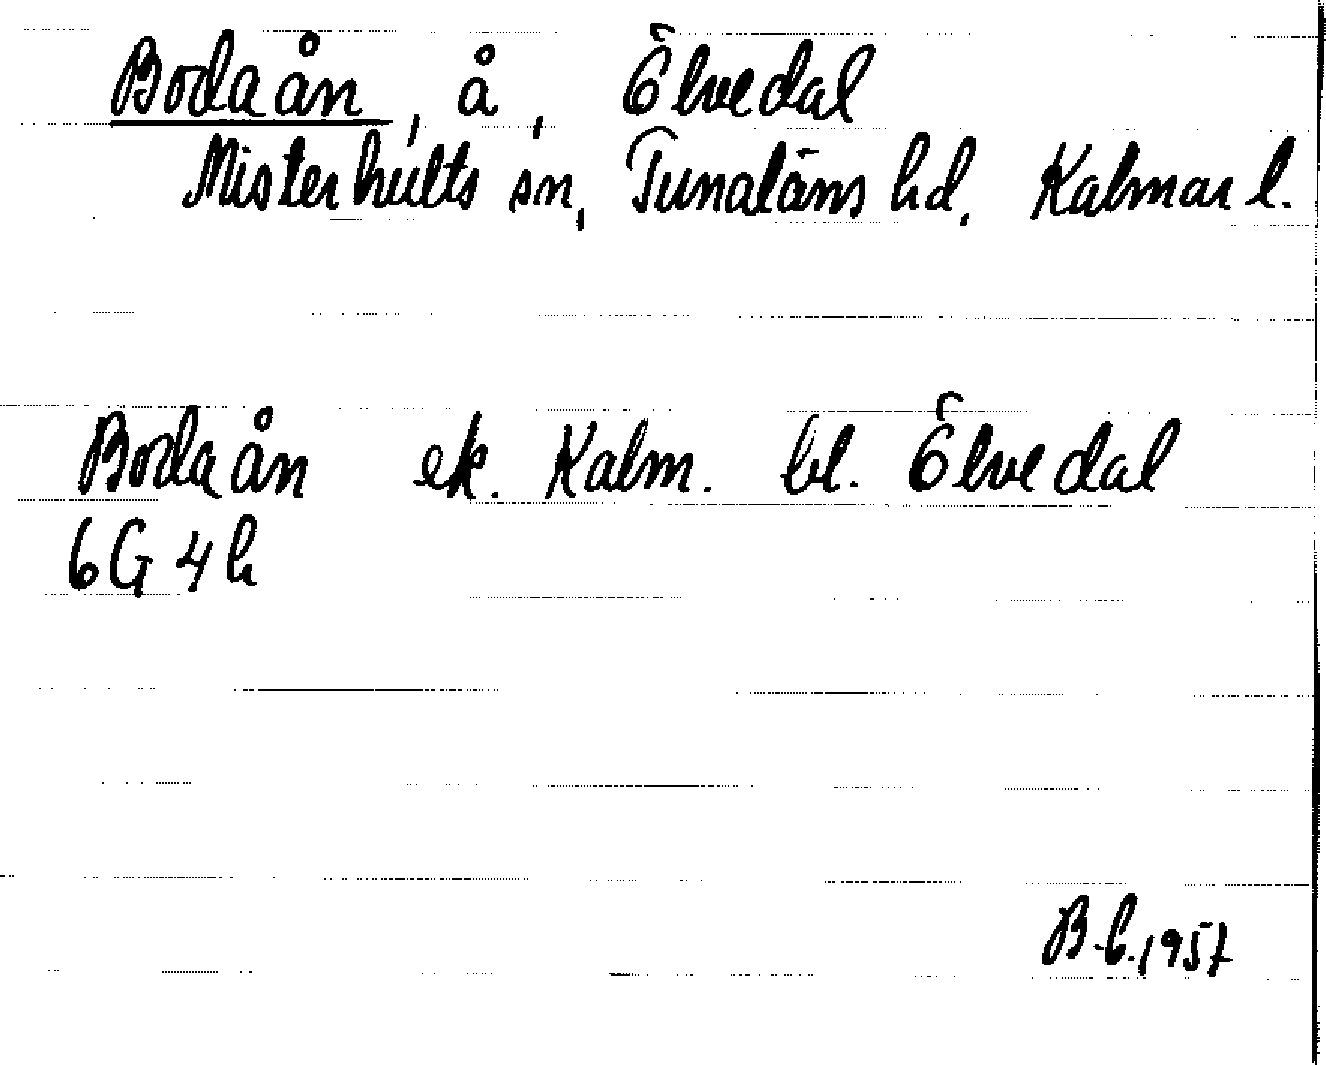 Bodaån, å, Elvedal
Misterhults sn, Tunaläns hd, Kalmar l.
Bodaån ek. Kalm. bl. Elvedal
6G 4h
B-b. 1957